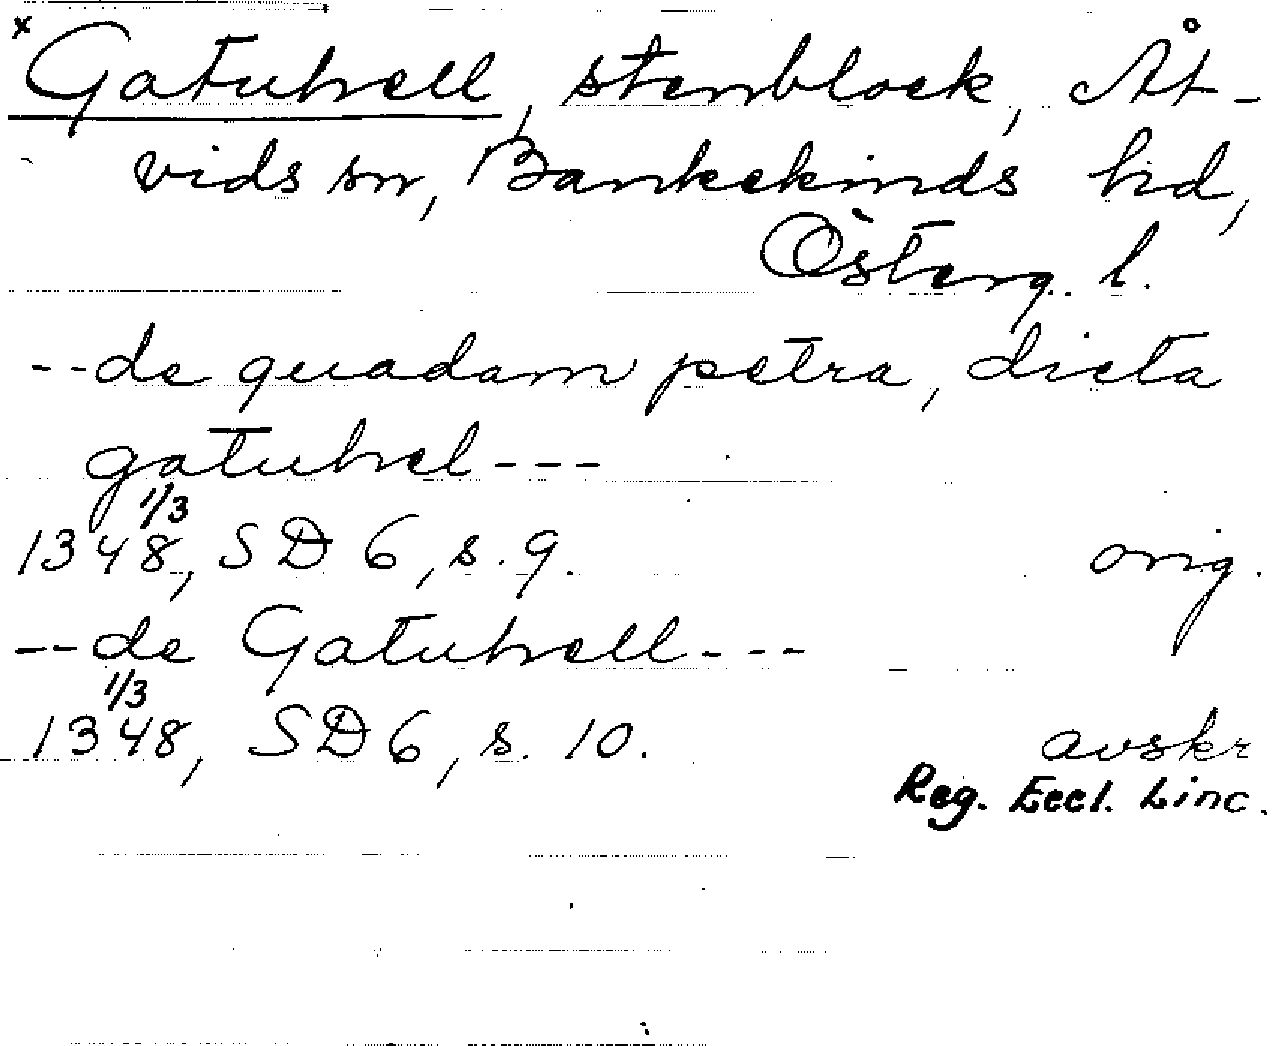 x Gatuhell, stenblock, Åt-
vids sn, Bankekinds hd,
Österg. l.
--de quadam petra, dicta
gatuhel---
1/3
1348, SD 6, s. 9. orig.
--de Gatuhell---
1/3
1348, SD 6, s. 10. avskr
Reg. Eccl. Linc.